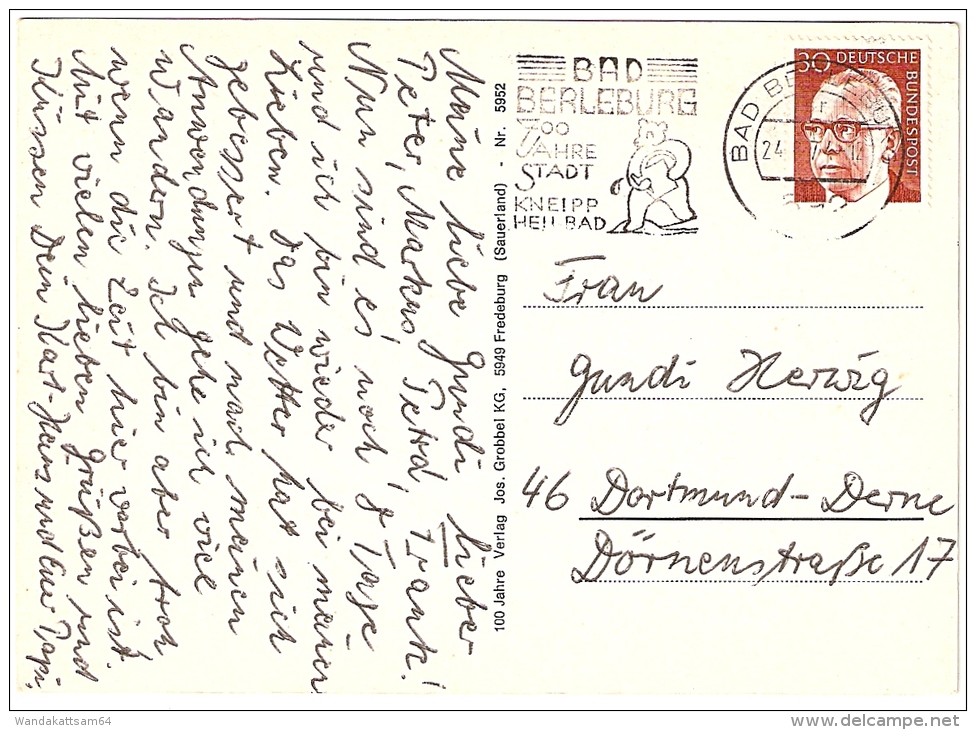 Meine liebe Gundi, lieber
Peter, Markus, Petra, Frank!
Nun sind es noch 8 Tage
und ich bin wieder bei meinen
Lieben. Das Wetter hat sich
gebessert und nach meinen
Anwendungen gehe ich viel
Wandern. Ich bin aber froh
wenn die Zeit hier vorbei ist.
Mit vielen lieben Grüßen und
Küssen Dein Karl-Hans und Euer Papi.
100 Jahre Verlag Jos. Grobbel KG, 5949 Fredeburg (Sauerland) - Nr. 5952
BAD
BERLEBURG
700
JAHRE
STADT
KNEIPP
HEILBAD
BAD BERLEBURG
24
30 DEUTSCHE
BUNDESPOST
Frau
Gundi Herwig
46 Dortmund-Derne
Dörnenstraße 17
Wandakattsam64
www.delcampe.net